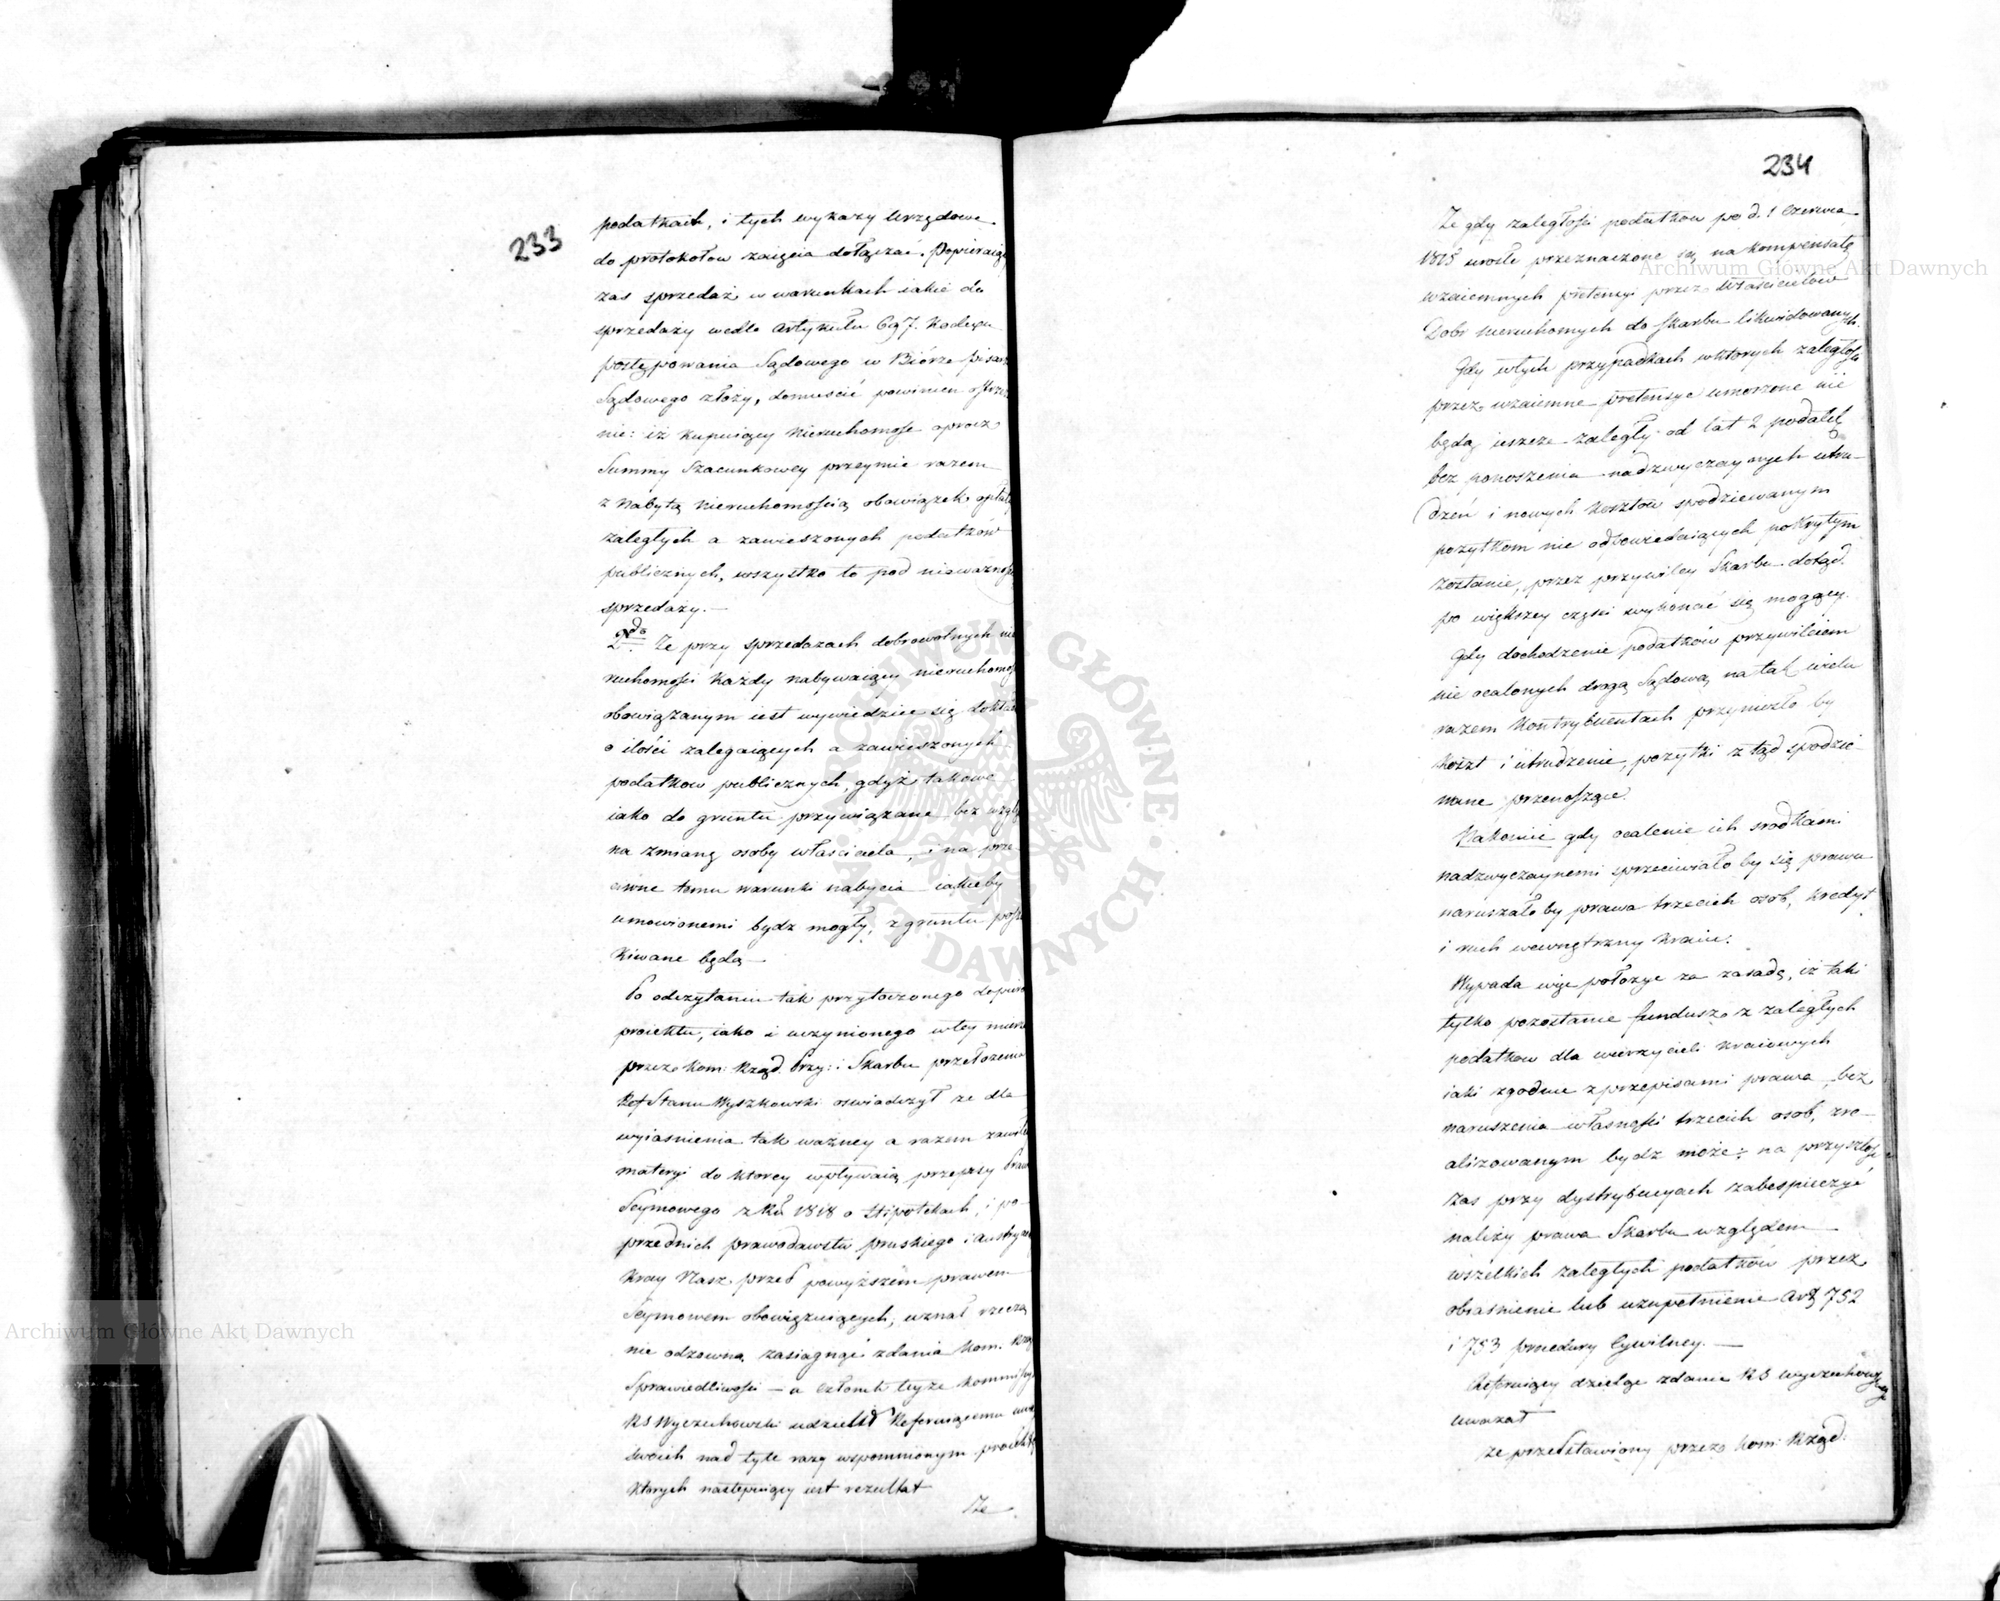 233
podatkach, i tych wykazy Urzędowe
do protokołow zaięcia dołączać. Popieraiąc
zas sprzedaż w warunkach iakie do
sprzedaży wedle Artykułu 697. Kodexu
postępowania Sądowego w Biórze pisarza
Sądowego złoży, domieścić powinien ostrze
nie: iż kupuiący Nieruchomość oprocz
Summy Szacunkowey przeymie razem
z nabytą nieruchomością obowiązek opłaty
zaległych a zawieszonych podatków
publicznych, wszystko to pod nieważnością
sprzedaży. —
2do Ze przy sprzedazach dobrowolnych nie
ruchomości Każdy nabywaiący nieruchomość
obowiązanym iest wywiedzieć się dokład
o ilości zalegaiących a zawieszonych
podatkow publicznych, gdyż takowe
iako do gruntu przywiązane bez względu
na zmianę osoby właściciela, i na prze
ciwne temu warunki nabycia iakieby
umowionemi bydz mogły, z gruntu poszu
kiwane będą —
Po odczytaniu tak przytoczonego dopiero
proiektu, iako i uczynionego w tey mierze
przez Kom: Rząd. Przy: i Skarbu przełożenia
Ref Stanu Wyszkowski oswiadczył ze dla
wyiasnienia tak ważney a razem zawiłey
materyi do ktorey wpływaią przepisy Praw
Seymowego z Ru 1818 o Hipotekach, i po-
przednich prawodawstw pruskiego i Austryac
Kray Nasz przed powyższem prawem
Seymowem obowięzuiących, uznał rzeczą
nie odzowną zasiągnąć zdania Kom. Rząd
Sprawiedliwości — a Członek teyże Kommissyi
RS Wyczechowski udzielił Referuiącemu uwag
swoich nad tyle razy wspomnionym proiektem
Ktorych następuiący iest rezultat
Ze
234
Ze gdy zaległości podatkow po d. 1 Czerwca
1815 urosłe przeznaczone są na kompensatę
wzaiemnych pretensyi przez Właścicielow
Dobr nieruchomych do skarbu likwidowanych.
Gdy w tych przypadkach w ktorych zaległości
przez wzaiemne pretensye umorzone nie
będą ieszcze zaległy od lat 2 podatek
bez ponoszenia nadzwyczaynych utru-
dzeń i nowych kosztow spodziewanym
pozytkom nie odpowiedaiących pokrytym
zostanie, przez przywiley Skarbu dotąd
po większey części wykonać się mogący.
Gdy dochodzenie podatków przywileiem
nie ocalonych drogą Sądową na tak wielu
razem Kontrybuentach przyniosło by
koszt i utrudzenie, pozytki z tąd spodzie-
wane przenoszące.
Nakoniec gdy ocalenie ich srodkami
nadzwyczaynemi sprzeciwiało by się prawu
naruszało by prawa trzecich osob, kredyt
i ruch wewnętrzny Kraiu.
Wypada więc położyc za zasadę, iż taki
tylko pozostanie fundusz z zaległych
podatkow dla wierzycieli Kraiowych
iaki zgodnie z przepisami prawa bez
naruszenia własności trzecich osob, zre-
alizowanym bydz może; na przyszłość
zas przy dystrybucyach zabespieczyć
należy prawa Skarbu względem
wszelkich zaległych podatków przez
obiasnienie lub uzupełnienie Art 752
i 753 procedury Cywilney. —
Referuiący dzieląc zdanie RS Wyczechowskiego
uważał
ze przedstawiony przez Kom: Rząd:
Archiwum Główne Akt Dawnych
Archiwum Główne Akt Dawnych
ARCHIWUM GŁÓWNE AKT DAWNYCH